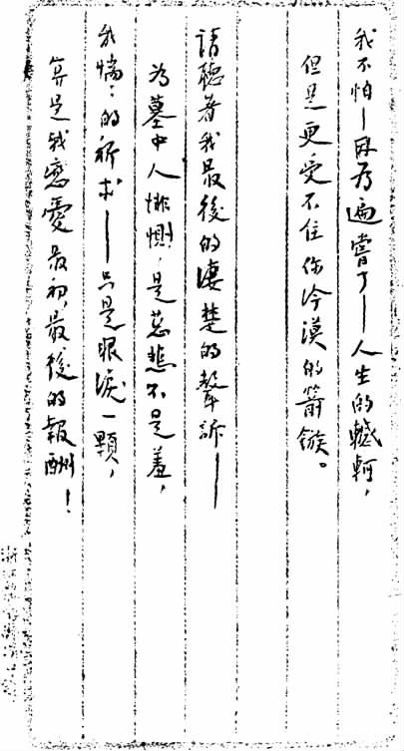 我不怕—因为遍嘗了—人生的轗軻，
但是更受不住你冷漠的箭鏃。
請聽着我最後的凄楚的聲訴——
為墓中人悱惻，是慈悲不是羞，
我惴：的祈求——只是眼淚一顆，
算是我戀愛最初，最後的報酬！